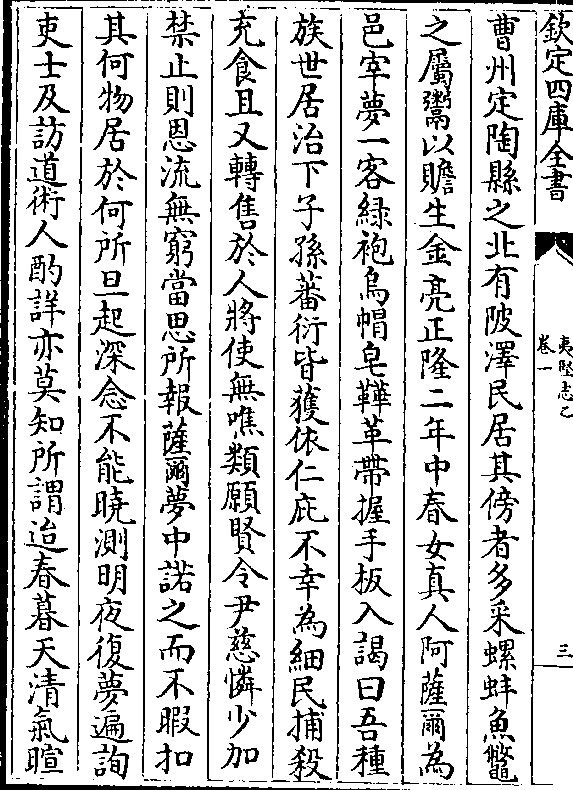 欽定四庫全書
夷堅志乙
卷一
三
曹州定陶縣之北有陂澤民居其傍者多采螺蚌魚鼈
之屬鬻以贍生金亮正隆二年中春女真人阿薩爾為
邑宰夢一客緑袍烏帽皂鞾革帶握手板入謁曰吾種
族世居治下子孫蕃衍皆獲依仁庇不幸為細民捕殺
充食且又轉售於人將使無噍類願賢令尹慈憐少加
禁止則恩流無窮當思所報薩爾夢中諾之而不暇扣
其何物居於何所旦起深念不能曉測明夜復夢遍詢
吏士及訪道術人酌詳亦莫知所謂迨春暮天清氣暄